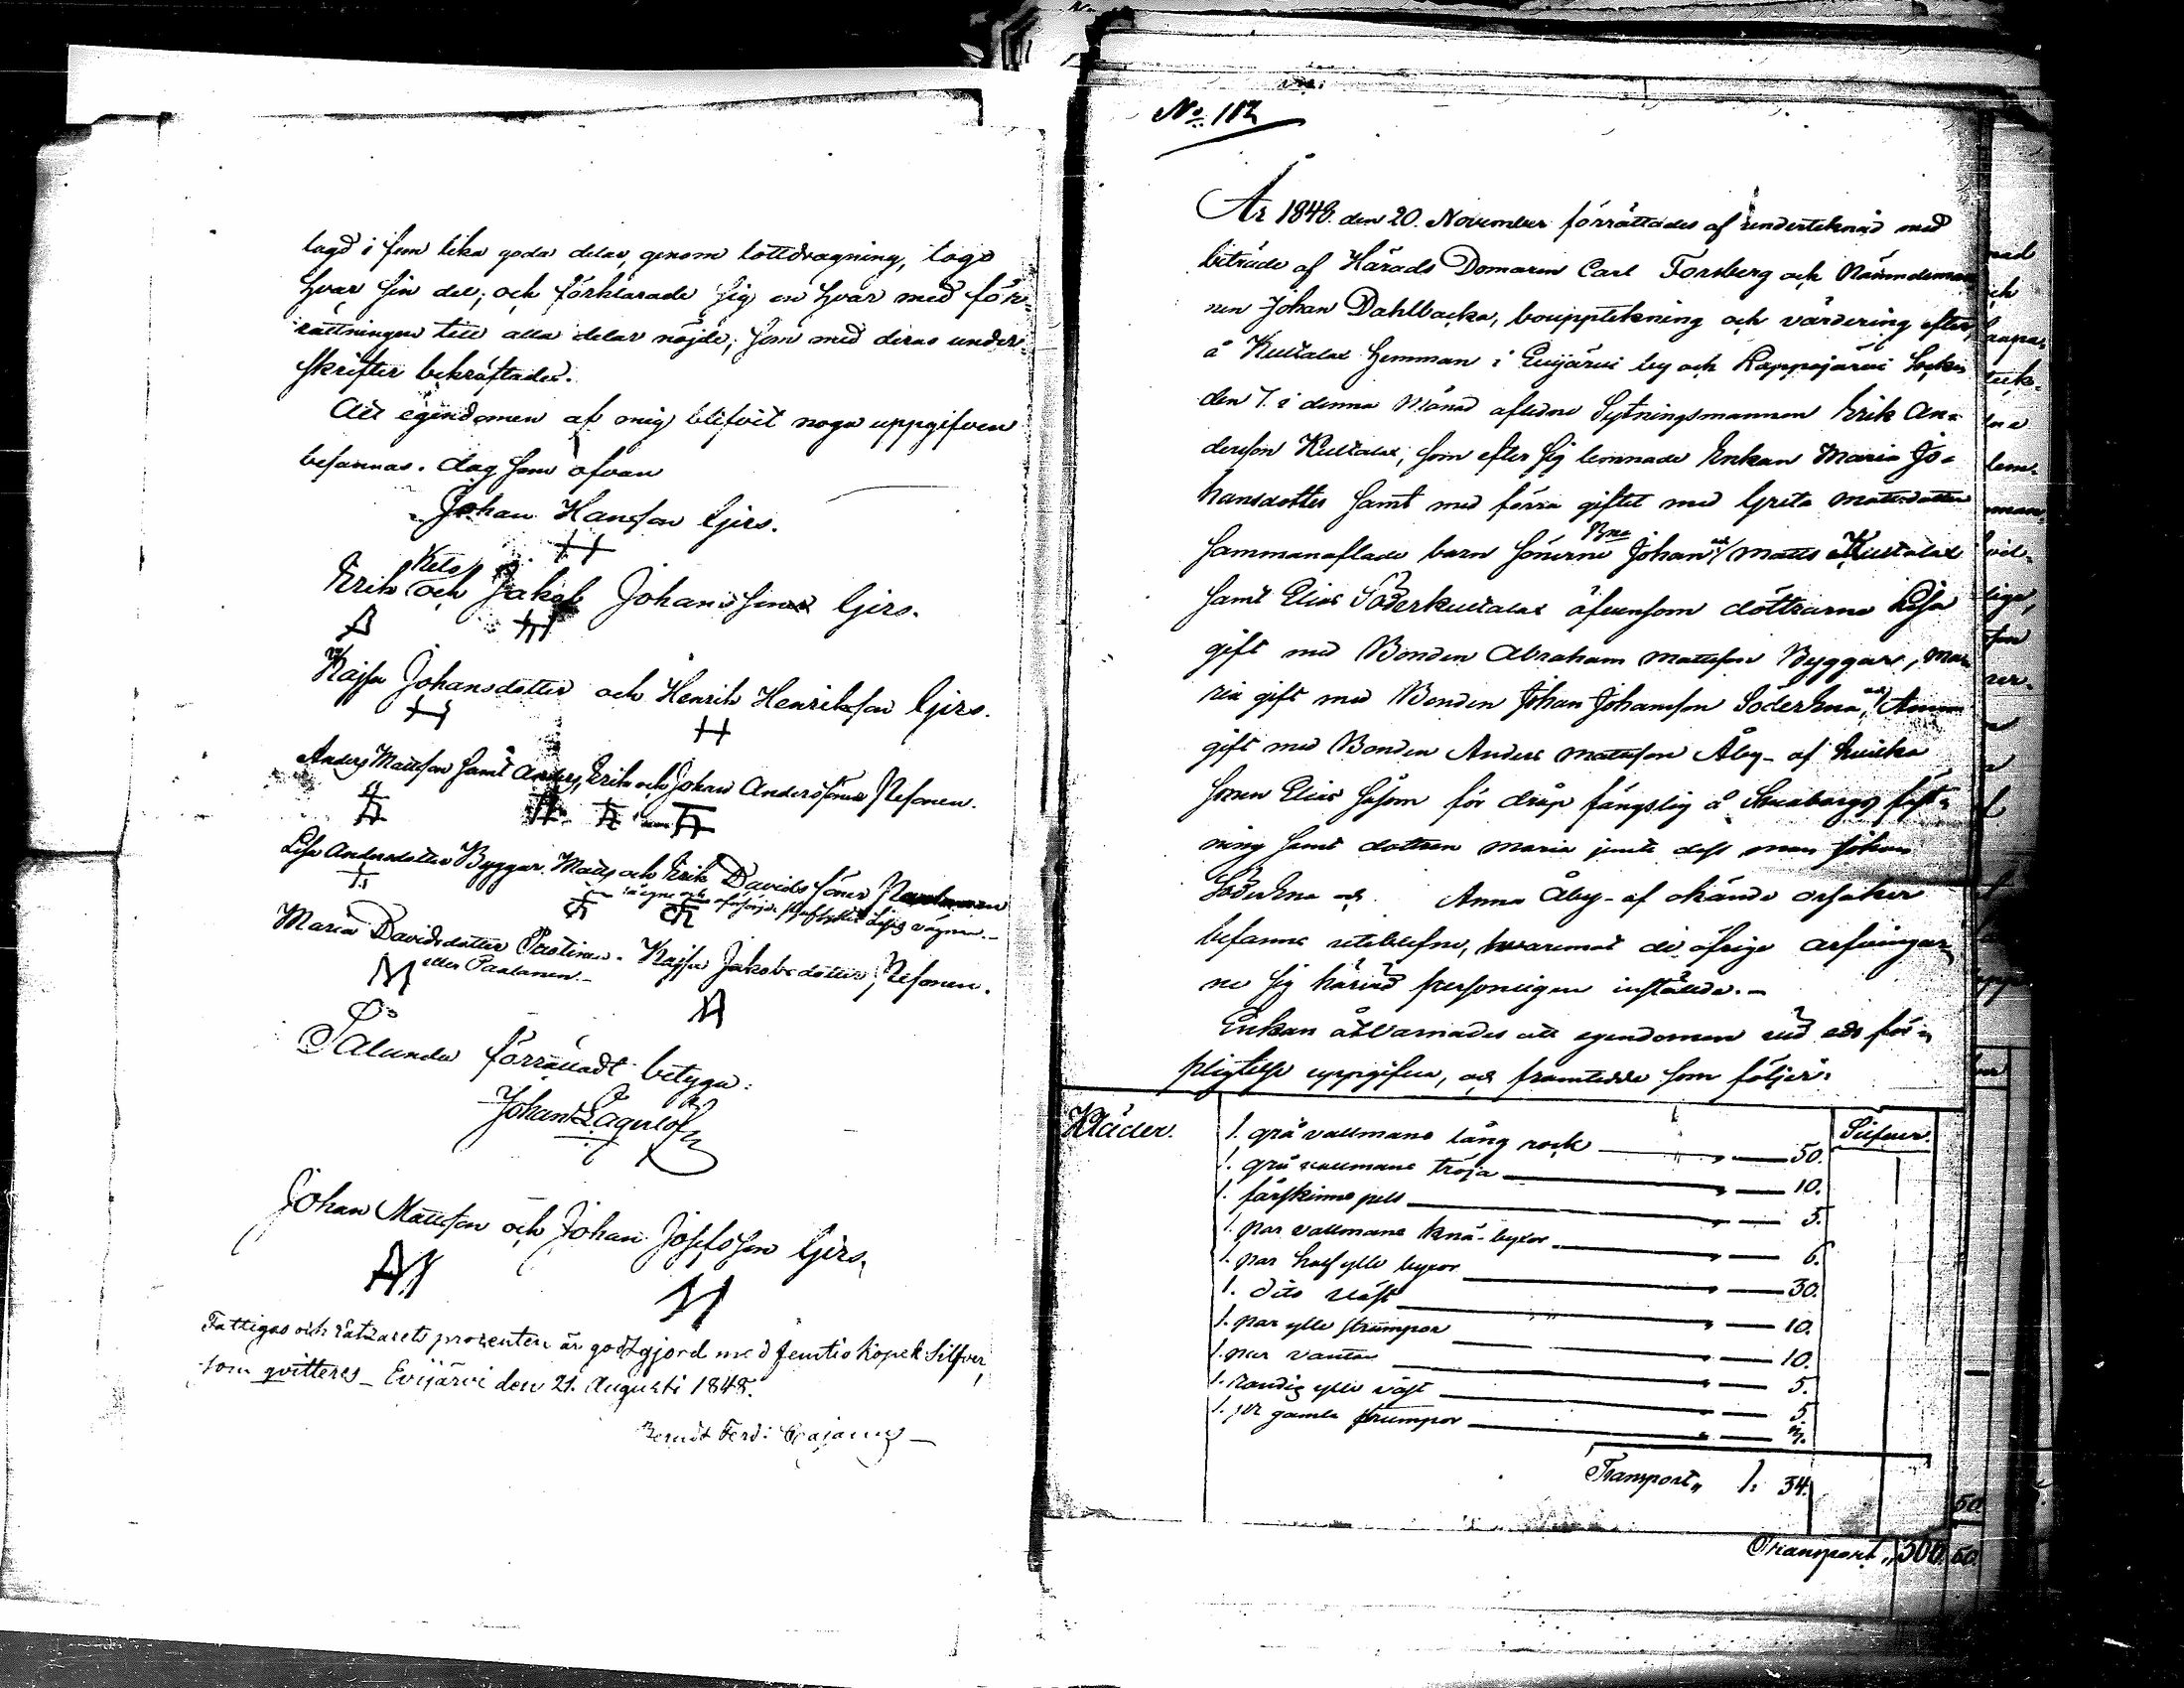 lagd i fem lika goda delar, genom lottdragning, togo
hvar sin del; och förklarade sig en hvar med för-
rättningen till alla delar nöjde, som med deras under-
skrifter bekräftades.
Att egendomen af mig blifvit noga uppgifven
besannas. dag som ofvan
Johan Hansson Girs.
Keto
Erik och Jakob Johans söner Girs.
Kajsa Johansdotter och Henrik Henriksson Girs.
Anders Mattsson samt Anders, Erik och Johan Anders söner
Lisa Andersdotter Byggar. Matts och Erik Davids söner
Maria Davidsdotter Kajsa Jakobsdotter
eller Paalanen.
Sålunda förrättadt betyga:
Johan Lagerlöf
Johan Mattsson och Johan Josefsson Girs.
Fattigas och procenten är godtgjord med femtio kopek Silfver,
som qvitteres _ Evijärvi den 21. Augusti 1848.
Berndt Ferd:
No. 112
År 1848. den 20. November förrättades af undertecknad med
biträde af Härads Domaren Carl Forsberg och Nämndeman
nen Johan Dahlbacka, bouppteckning och värdering efter,
å Kultalax hemman i Evijärvi by och Lappajärvi Socken
den 7. i denna Månad aflidne Sytningsmannen Erik An-
dersson Kultalax, som efter sig lemnade Enkan Maria Jo-
hansdotter samt med förra giftet med Greta Mattsdotter
sammanaflade barn sönerne Johan och Matts Kultalax
samt Elias Söderkultalax äfvensom döttrarna Lisa
gift med Bonden Abraham Mattsson Byggar, Ma-
ria gift med Bonden Johan Johansson Söderena, och Anna
gift med Bonden Anders Mattsson Åby - af hvilka
sonen Elias såsom för dråp fängslig å Sveaborgs fäst-
ning samt dottren Maria jemte dess man Johan
Söderena och Anna Åby - af okände orsaker
befanns uteblefne, hvaremot de öfrige arfvingar-
ne sig härvid personligen inställde. -
Enkan åtvarnades att egendomen vid eds för-
pligtelse uppgifva, och framtedde som följer:
Kläder. Silfver.
1. grå vallmans lång rock — 50.
1. grå vallmans tröja — 10.
1. fårskinns pels — 5.
1. par vallmans knä-byxor — 6.
1. par half ylle byxor — 30.
1. dito väst — 10.
1. par ylle strumpor — 10.
1. par vantar — 5.
1. randig ylle väst — 5.
1. par gamla strumpor — 3.
Transport„ 1. 34.
50.
Transport„ 500 50.